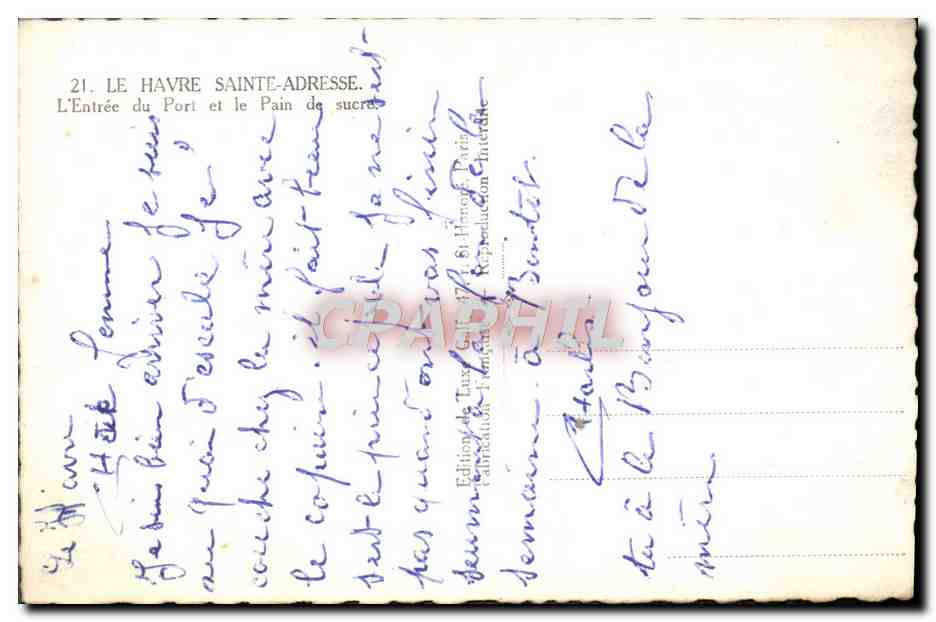 21. LE HAVRE SAINTE-ADRESSE.
L'Entrée du Port et le Pain de sucre.
Edition de Luxe 47, r. St-Honoré, Paris
Fabrication Française - Reproduction Interdite
CPAPHIL
Le Havre
femme
Je suis bien arriver je suis
au quai d'escale je
couche chez la mère avec
le copain. il fait beau
sest le principale je ne sest
pas quand on vas finir
seument a la fin de la
semaine. à Bientôt.
Charles
tu à le Bonjour de la
mère